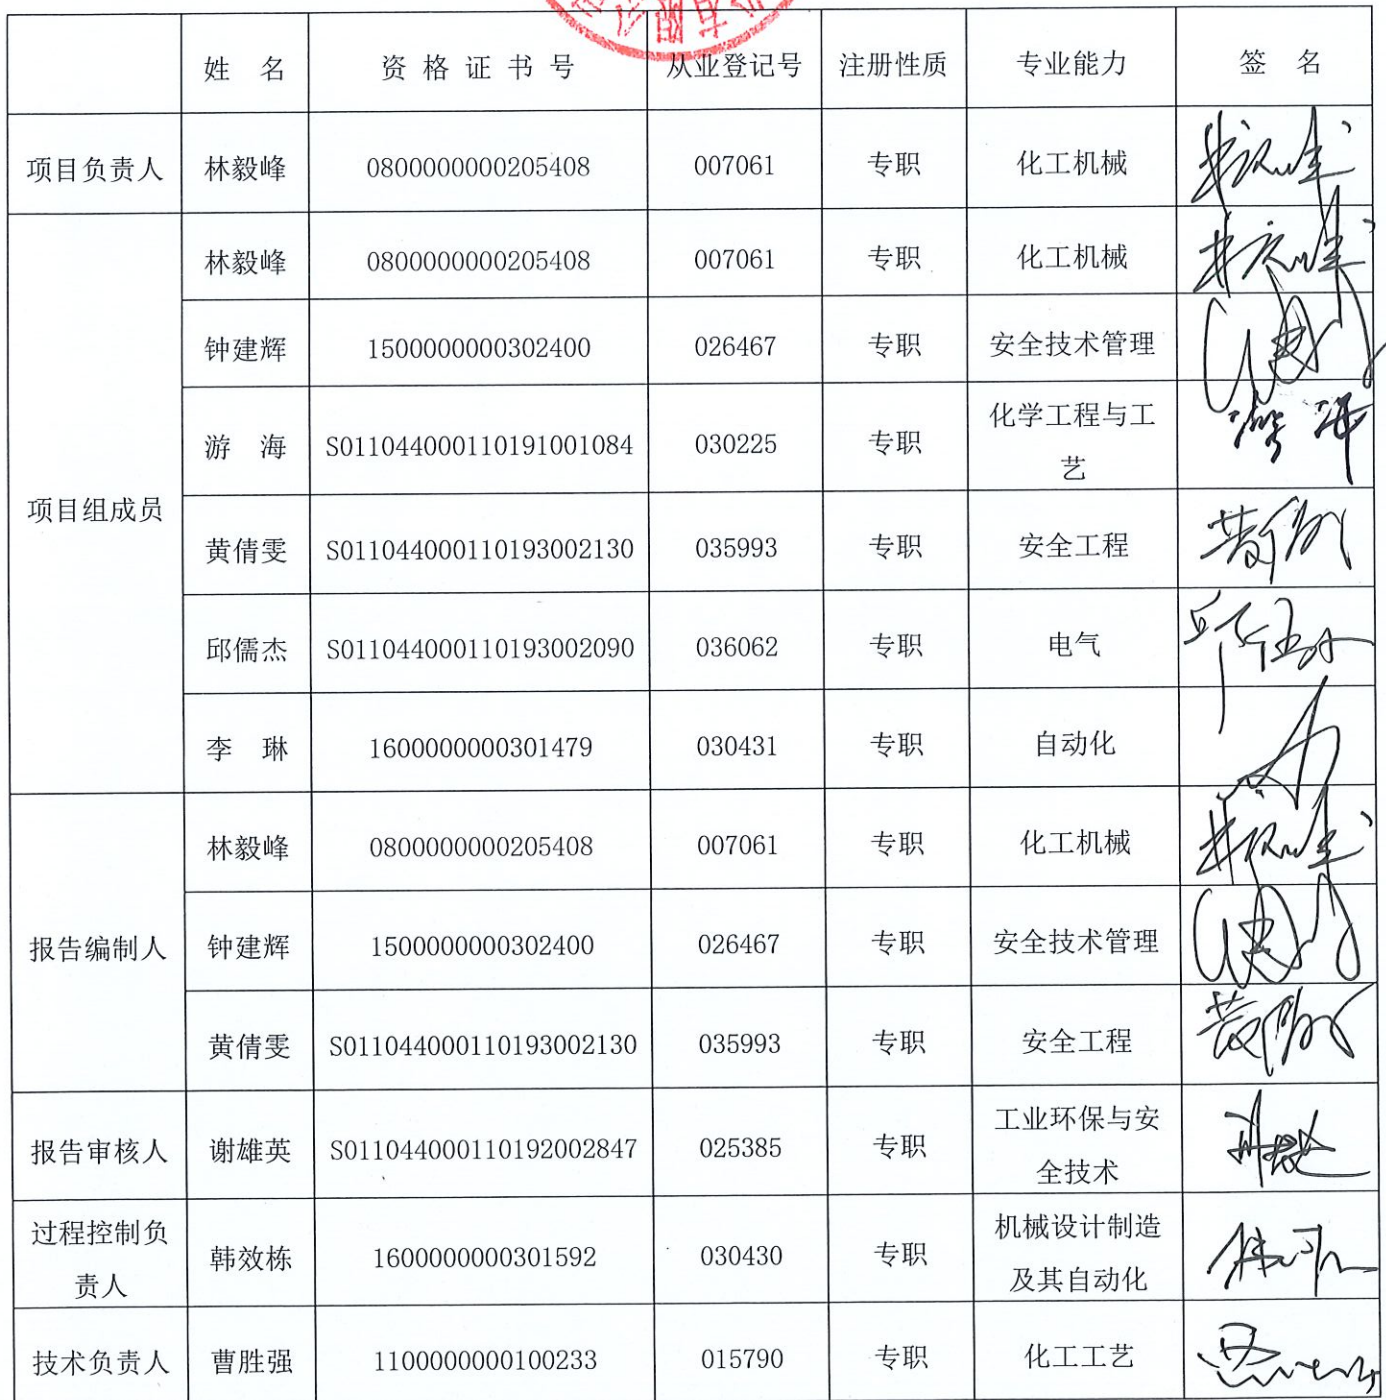 有限公司
姓 名 资 格 证 书 号 从业登记号 注册性质 专业能力 签 名
项目负责人 林毅峰 0800000000205408 007061 专职 化工机械
项目组成员
林毅峰 0800000000205408 007061 专职 化工机械
钟建辉 1500000000302400 026467 专职 安全技术管理
游 海 S011044000110191001084 030225 专职 化学工程与工
艺
黄倩雯 S011044000110193002130 035993 专职 安全工程
邱儒杰 S011044000110193002090 036062 专职 电气
李 琳 1600000000301479 030431 专职 自动化
报告编制人
林毅峰 0800000000205408 007061 专职 化工机械
钟建辉 1500000000302400 026467 专职 安全技术管理
黄倩雯 S011044000110193002130 035993 专职 安全工程
报告审核人 谢雄英 S011044000110192002847 025385 专职 工业环保与安
全技术
过程控制负
责人
韩效栋 1600000000301592 030430 专职 机械设计制造
及其自动化
技术负责人 曹胜强 1100000000100233 015790 专职 化工工艺